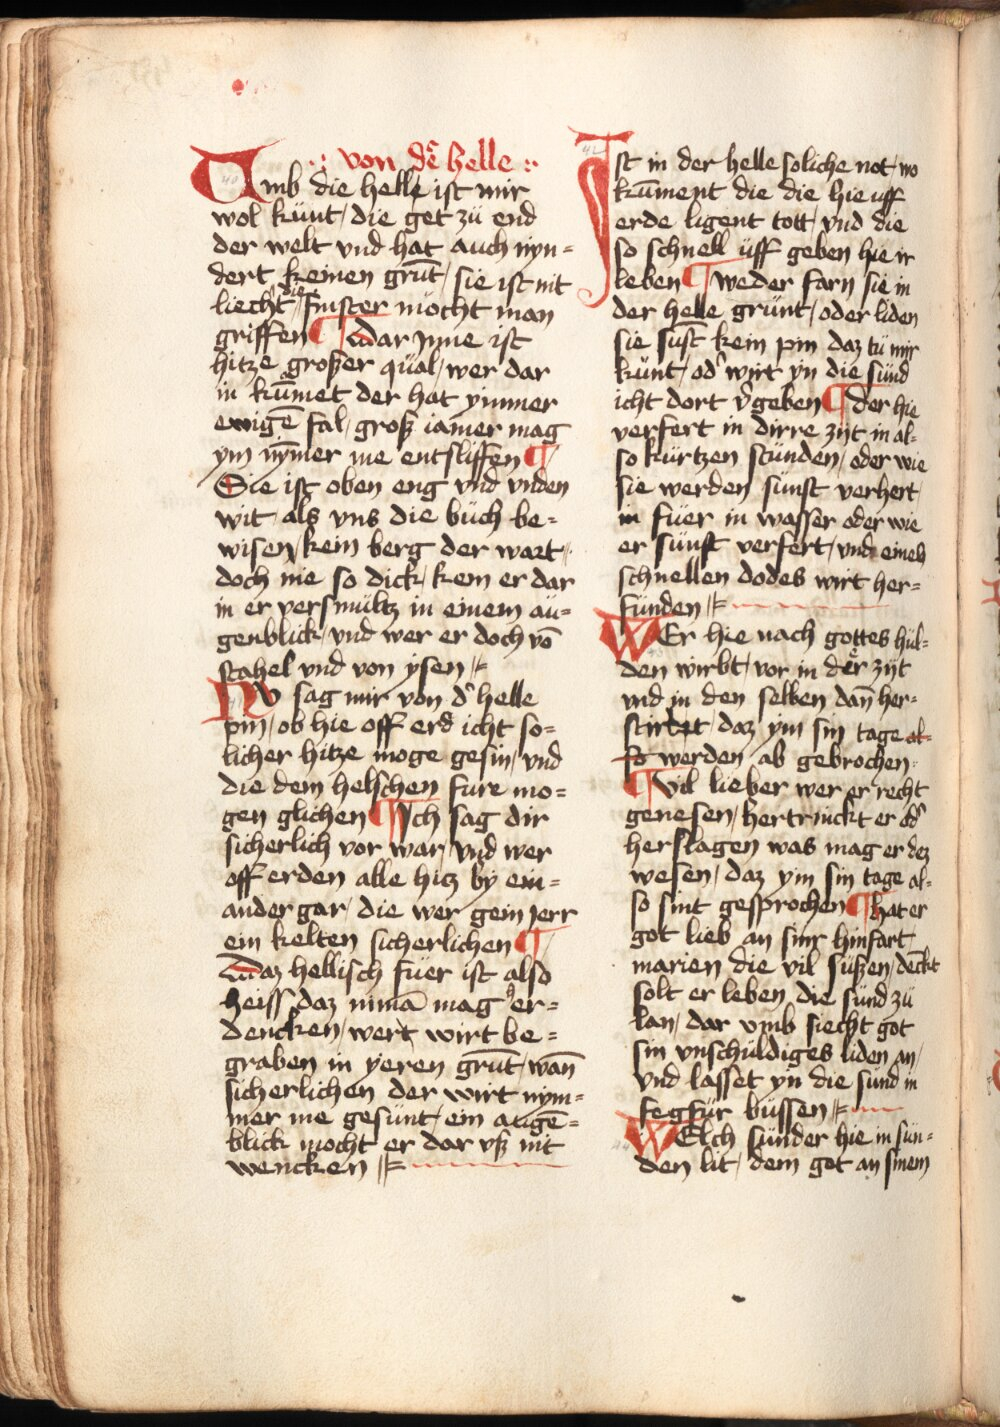 von dē helle
Umb die helle ist mir
wol kunt / die get zü end
der welt vnd hat auch nyn=
dert keinen grūt / sie ist nit
liecht die finster mocht man
griffen ¶ Dar jnne ist
hitze großer qual / wer dar
in kūmet der hat ymmer
ewigē fal / groß iamer mag
ym nȳmer me entsliffen ¶
Sie ist oben eng vnd vnden
wit als vns die büch be=
wisen / kein berg der wart
doch nie so dick / kem er dar
in er versmultz in einem au=
genblick / vnd wer er doch vō
stahel vnd von ysen
NV sag mir von d' helle
pin / ob hie off erd icht so=
licher hitze moge gesin / vnd
die dem helschen fure mo=
gen glichen ¶ Ich sag dir
sicherlich vor war / vnd wer
off erden alle hitz by ein=
ander gar / die wer gein jerr
ein kelten sicherlichen ¶
Daz hellisch fuer ist also
heiss daz nimā mag er=
dencken / wert wirt be=
graben in yeren grūt / wān
sicherlichen der wirt nym=
mer me gesunt / ein augē=
blick mocht er dar vß nit
wencken
Ist in der helle soliche not / wo
kūment die die hie uff
erde ligent tott / vnd die
so schnell uff geben hie ir
leben ¶ weder farn sie in
der helle grunt / oder liden
sie sust kein pin daz tu mir
kunt / od' wirt yn die sund
icht dort v'geben ¶ der hie
verfert in dirre zijt in al=
so kurtzen stunden / oder wie
sie werden sunst verhert
in fuer in wasser oder wie
er sunst verfert / vnd eines
schnellen dodes wirt her=
funden
WEr hie nach gottes hul=
den wirbt / vor in der zijt
vnd in den selben dan̄ her=
stirbet / daz ym sin tage al=
so werden ab gebrochen
¶ Vil lieber wer er recht
genesen / hertrinckt er od'
herslagen was mag er dez
wesen / daz ym sin tage al=
so sint gesprochen ¶ hat er
got lieb an siner hinfart
marien die vil sußen / deckt
solt er leben die sund zü
lan / dar vmb siecht got
sin vnschuldiges liden an /
vnd lasset yn die sund in
fegfur bussen
WElch sunder hie in sun=
den lit / dem got an sinem